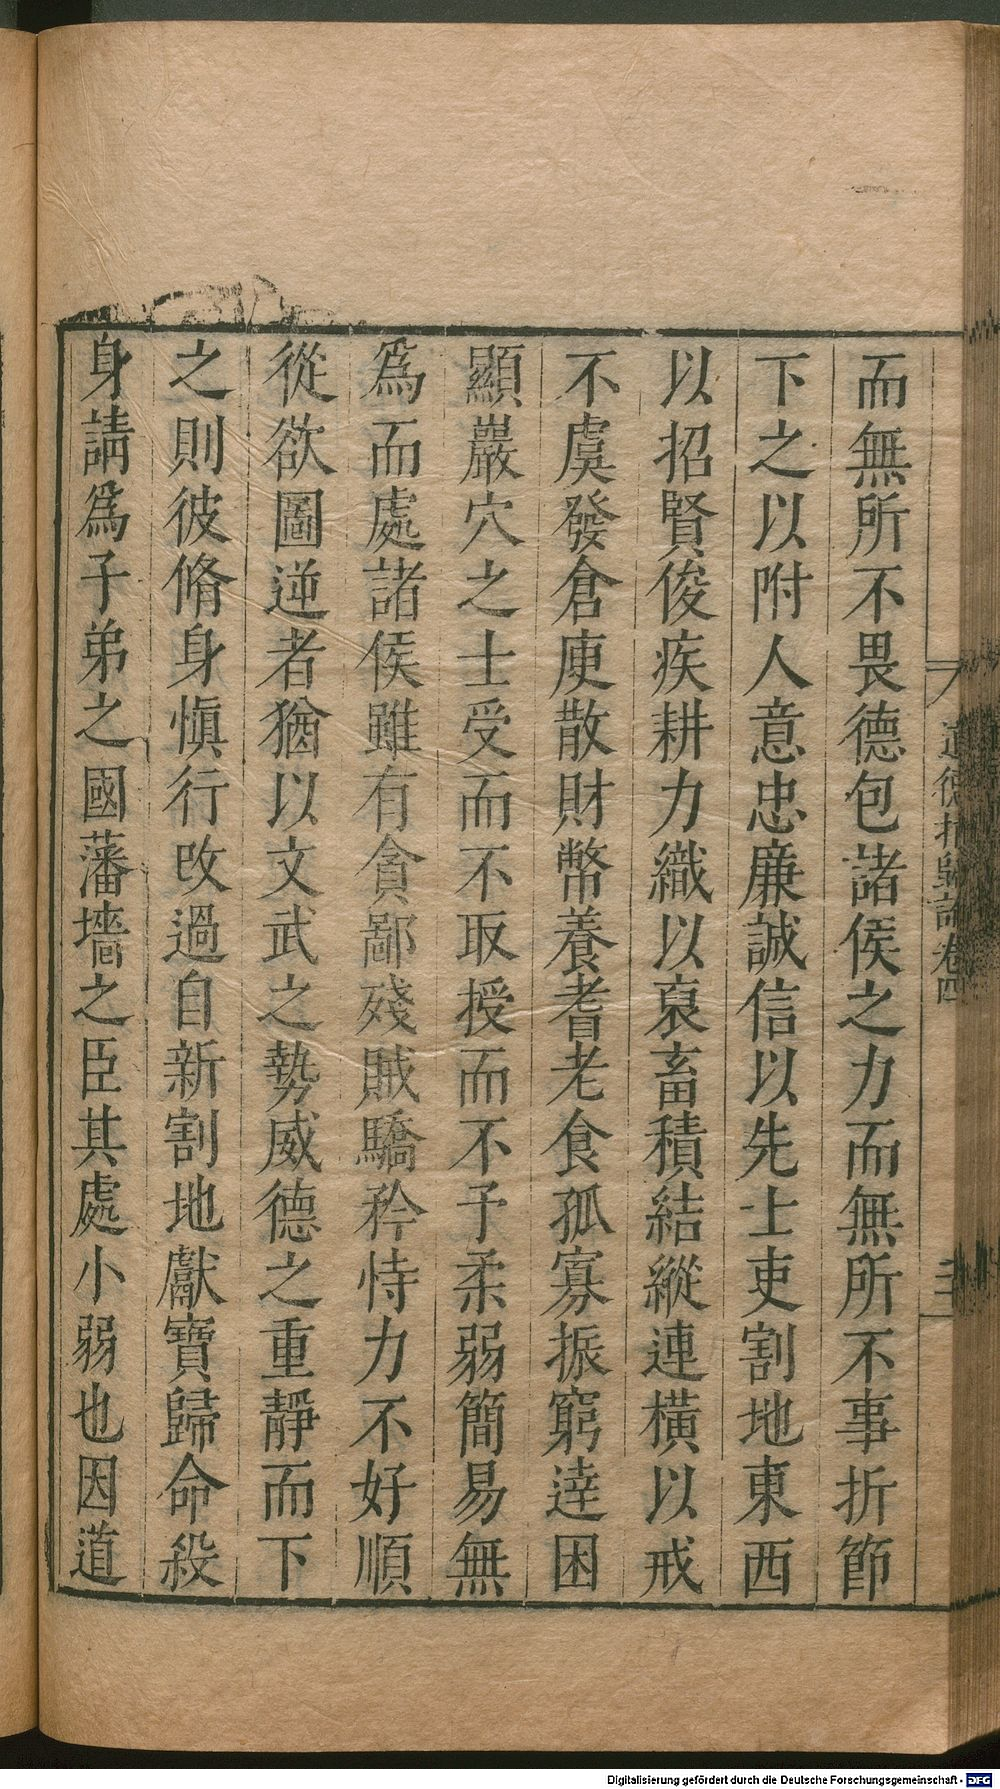 而無所不畏德包諸侯之力而無所不事折節
下之以附人意忠廉誠信以先士吏割地東西
以招賢俊疾耕力織以裒畜積結縱連橫以戒
不虞發倉庾散財幣養耆老食孤寡振窮逹困
顯巖穴之士受而不取授而不予柔弱簡易無
爲而處諸侯雖有貪鄙殘賊驕矜恃力不好順
從欲圖逆者猶以文武之勢威德之重靜而下
之則彼脩身愼行改過自新割地獻寶歸命殺
身請爲子弟之國藩墻之臣其處小弱也因道
道德指歸論卷四
Digitalisierung gefördert durch die Deutsche Forschungsgemeinschaft - DFG